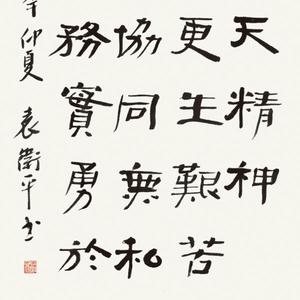 天精神
更生艱苦
協同無私
務實勇於
仲夏 袁衛平书